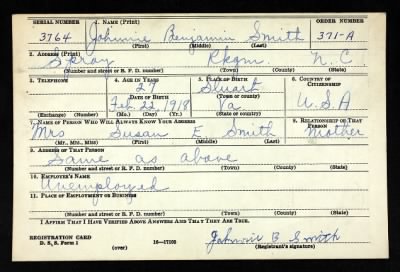 SERIAL NUMBER 1. NAME (Print) ORDER NUMBER
3764 Johnnie Benjamin Smith 371-A
(First) (Middle) (Last)
2. ADDRESS (Print)
Spray Rkgm. N.C.
(Number and street or R. F. D. number) (Town) (County) (State)
3. TELEPHONE 4. AGE IN YEARS 5. PLACE OF BIRTH 6. COUNTRY OF CITIZENSHIP
27 Stuart
DATE OF BIRTH (Town or county)
Feb. 22, 1918 Va. U.S.A
(Exchange) (Number) (Mo.) (Day) (Yr.) (State or country)
7. NAME OF PERSON WHO WILL ALWAYS KNOW YOUR ADDRESS 8. RELATIONSHIP OF THAT PERSON
Mrs Susan E. Smith Mother
(Mr., Mrs., Miss) (First) (Middle) (Last)
9. ADDRESS OF THAT PERSON
Same as above
(Number and street or R. F. D. number) (Town) (County) (State)
10. EMPLOYER'S NAME
Unemployed
11. PLACE OF EMPLOYMENT OR BUSINESS
(Number and street or R. F. D. number) (Town) (County) (State)
I AFFIRM THAT I HAVE VERIFIED ABOVE ANSWERS AND THAT THEY ARE TRUE.
REGISTRATION CARD
D. S. S. Form 1 (over) 16-17105 Johnnie B Smith
(Registrant's signature)